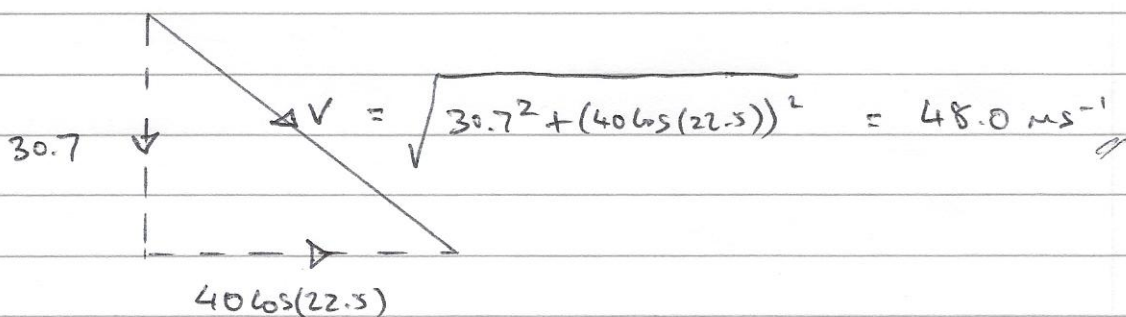 V = √(30.7² + (40cos(22.5))²) = 48.0 ms⁻¹
30.7
40cos(22.5)